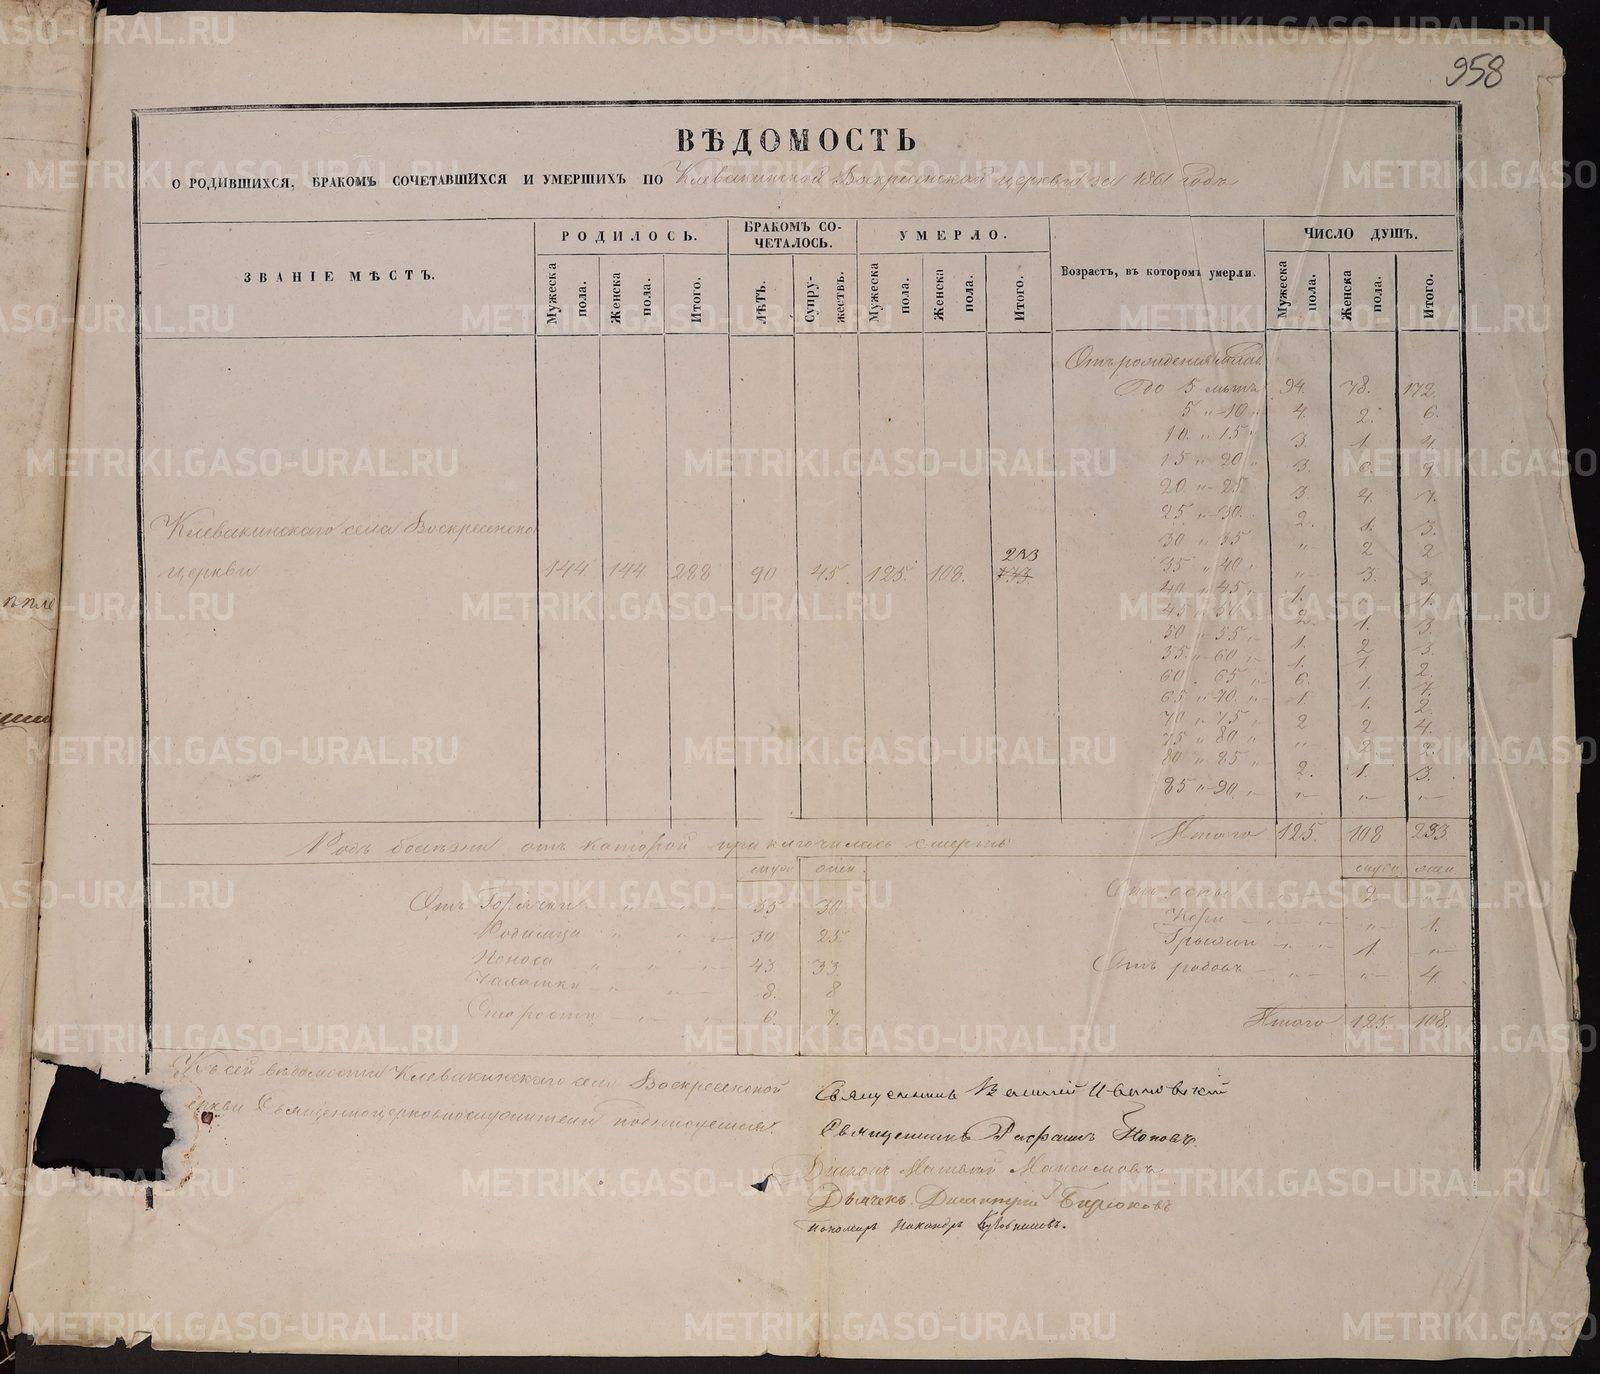 958
ВѢДОМОСТЬ
О РОДИВШИХСЯ, БРАКОМЪ СОЧЕТАВШИХСЯ И УМЕРШИХЪ ПО Клевакинской Воскресенской церкви за 1861 годъ
ЗВАНІЕ МѢСТЪ. РОДИЛОСЬ. БРАКОМЪ СО-ЧЕТАЛОСЬ. УМЕРЛО. Возрастъ, въ которомъ умерли. ЧИСЛО ДУШЪ.
Мужеска пола. Женска пола. Итого. ЛѢТЪ. Супру-жествъ. Мужеска пола. Женска пола. Итого. Мужеска пола. Женска пола. Итого.
Отъ рожденія
До 5 лѣтъ 94. 78. 172.
5 „ 10 „ 4. 2. 6.
10. „ 15 „ 3. 1. 4.
15 „ 20 „ 3. 6. 9.
20 „ 25 3. 4. 7.
25 „ 30. 2. 1. 3.
30 „ 35 „ 2 2
35 „ 40 „ „ 3. 3.
40 „ 45 „ 1. „ 1.
45 „ 50 „ 2. 1. 3.
50 „ 55 „ 1. 2 3.
55 „ 60 „ 1. 1. 2.
60 „ 65 „ 6. 1. 7.
65 „ 70. „ 1. 1. 2.
70 „ 75 „ 2 2 4.
75 „ 80 „ „ 2. 2.
80 „ 85 „ 2. 1. 3.
85 „ 90. „ „ „ „
Клевакинскаго села Воскресенской
церкви 144. 144. 288 90 45. 125. 108. 233
Итого 125. 108 233.
Родъ болѣзни отъ которой приключилась смерть
Отъ Горячки „ „ „ 35 30.
Родимца „ „ „ 30 25.
Поноса „ „ „ 43. 33.
Чахотки „ „ „ 8. 8
Старости „ „ 6. 7.
Отъ оспы 2 „
Кори „ 1.
Грыжи 1. „
Отъ родовъ „ „ 4.
Итого 125. 108.
Къ сей вѣдомости Клевакинскаго села Воскресенской
церкви Священноцерковнослужители подписуемся:
Священникъ
Священникъ Поповъ.
Діаконъ Матвей Максимовъ
Дьячекъ Димитрій Бирюковъ
Пономарь Никандръ
METRIKI.GASO-URAL.RU